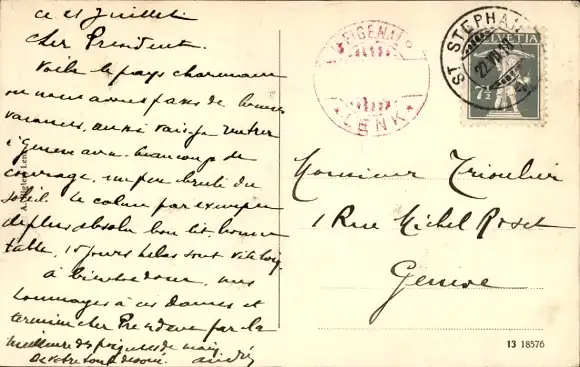 ce 21 Juillet
Cher President.
Voila le pays charmant
ou nous avons passé de bonnes
vacances, aussi vais-je rentrer
à Geneve avec beaucoup de
courage, un peu bruni du
soleil. Le calme par exemple
de plus absolu bon lit, bonne
table, 15 jours helas sont vite
à bientot donc, mes
hommages à ces Dames et
termine cher President par la
meilleure des poignées de main
De votre tout devoué. André
HELVETIA
7½
ST STEPHAN
22.VII.
LENK
Monsieur
1 Rue Michel Roset
Geneve
13 18576